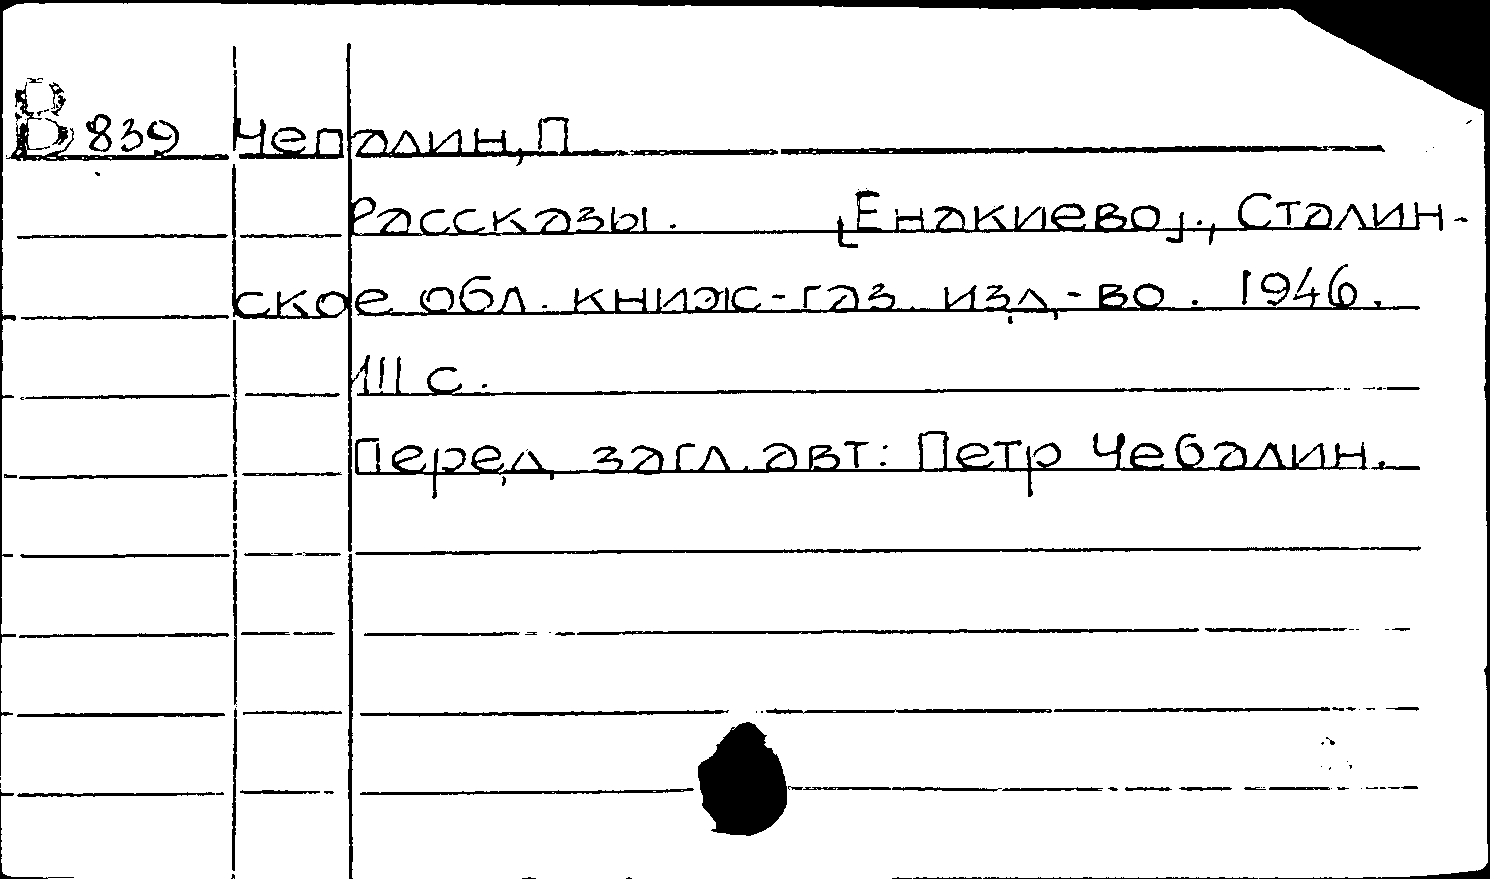 В 839 Чепалин, П.
Рассказы. [Енакиево]., Сталин-
ское обл. книж-газ. изд-во. 1946.
111 с.
Перед загл. авт: Петр Чебалин.